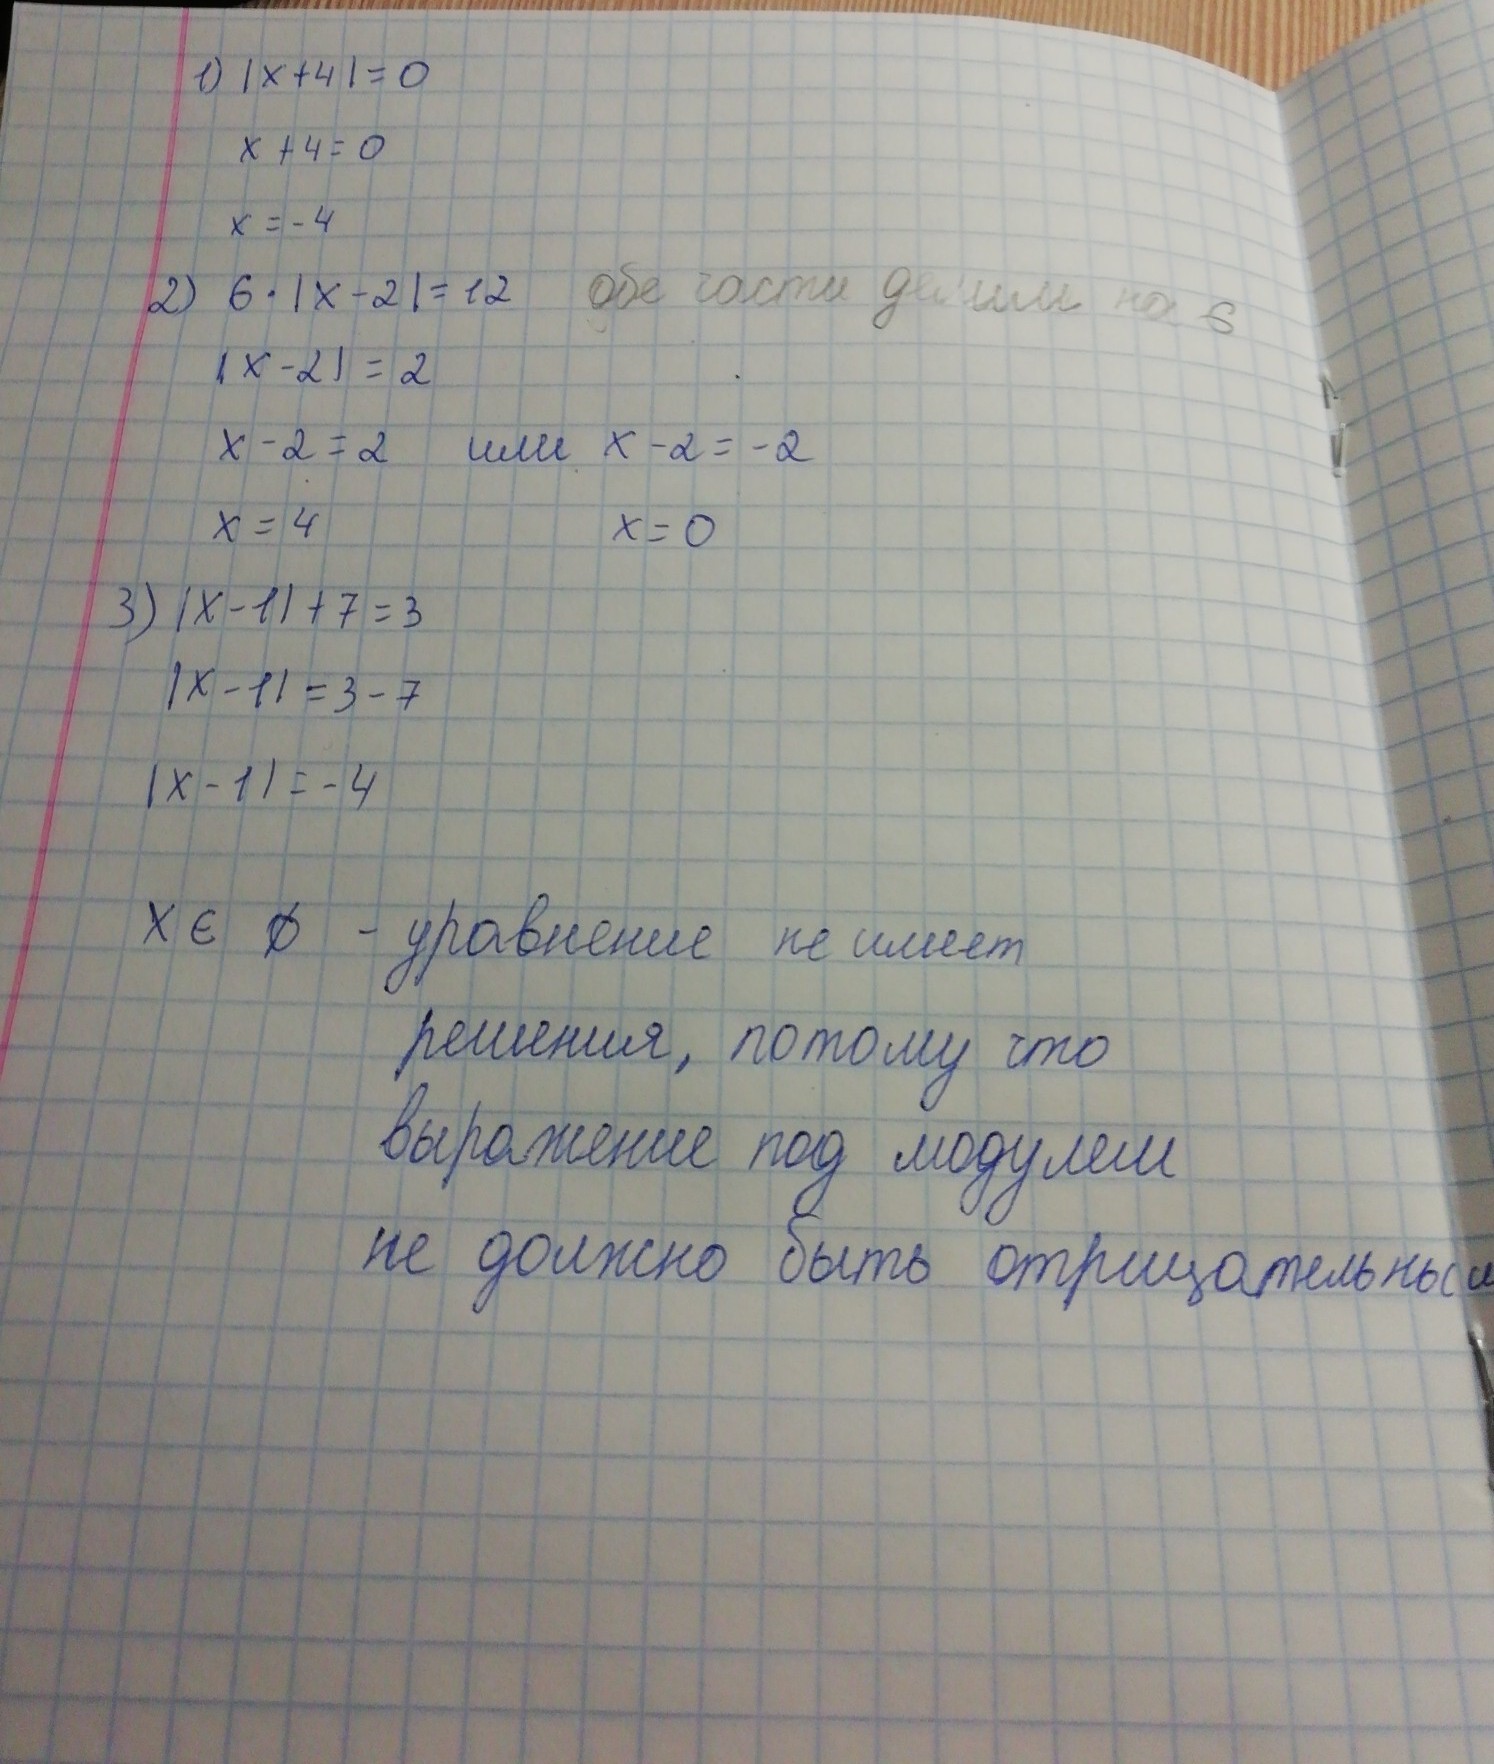 1) |x+4|=0
x+4=0
x=-4
2) 6·|x-2|=12 обе части делим на 6
|x-2|=2
x-2=2 или x-2=-2
x=4 x=0
3) |x-1|+7=3
|x-1|=3-7
|x-1|=-4
x∈ ∅ - уравнение не имеет
решения, потому что
выражение под модулем
не должно быть отрицательным